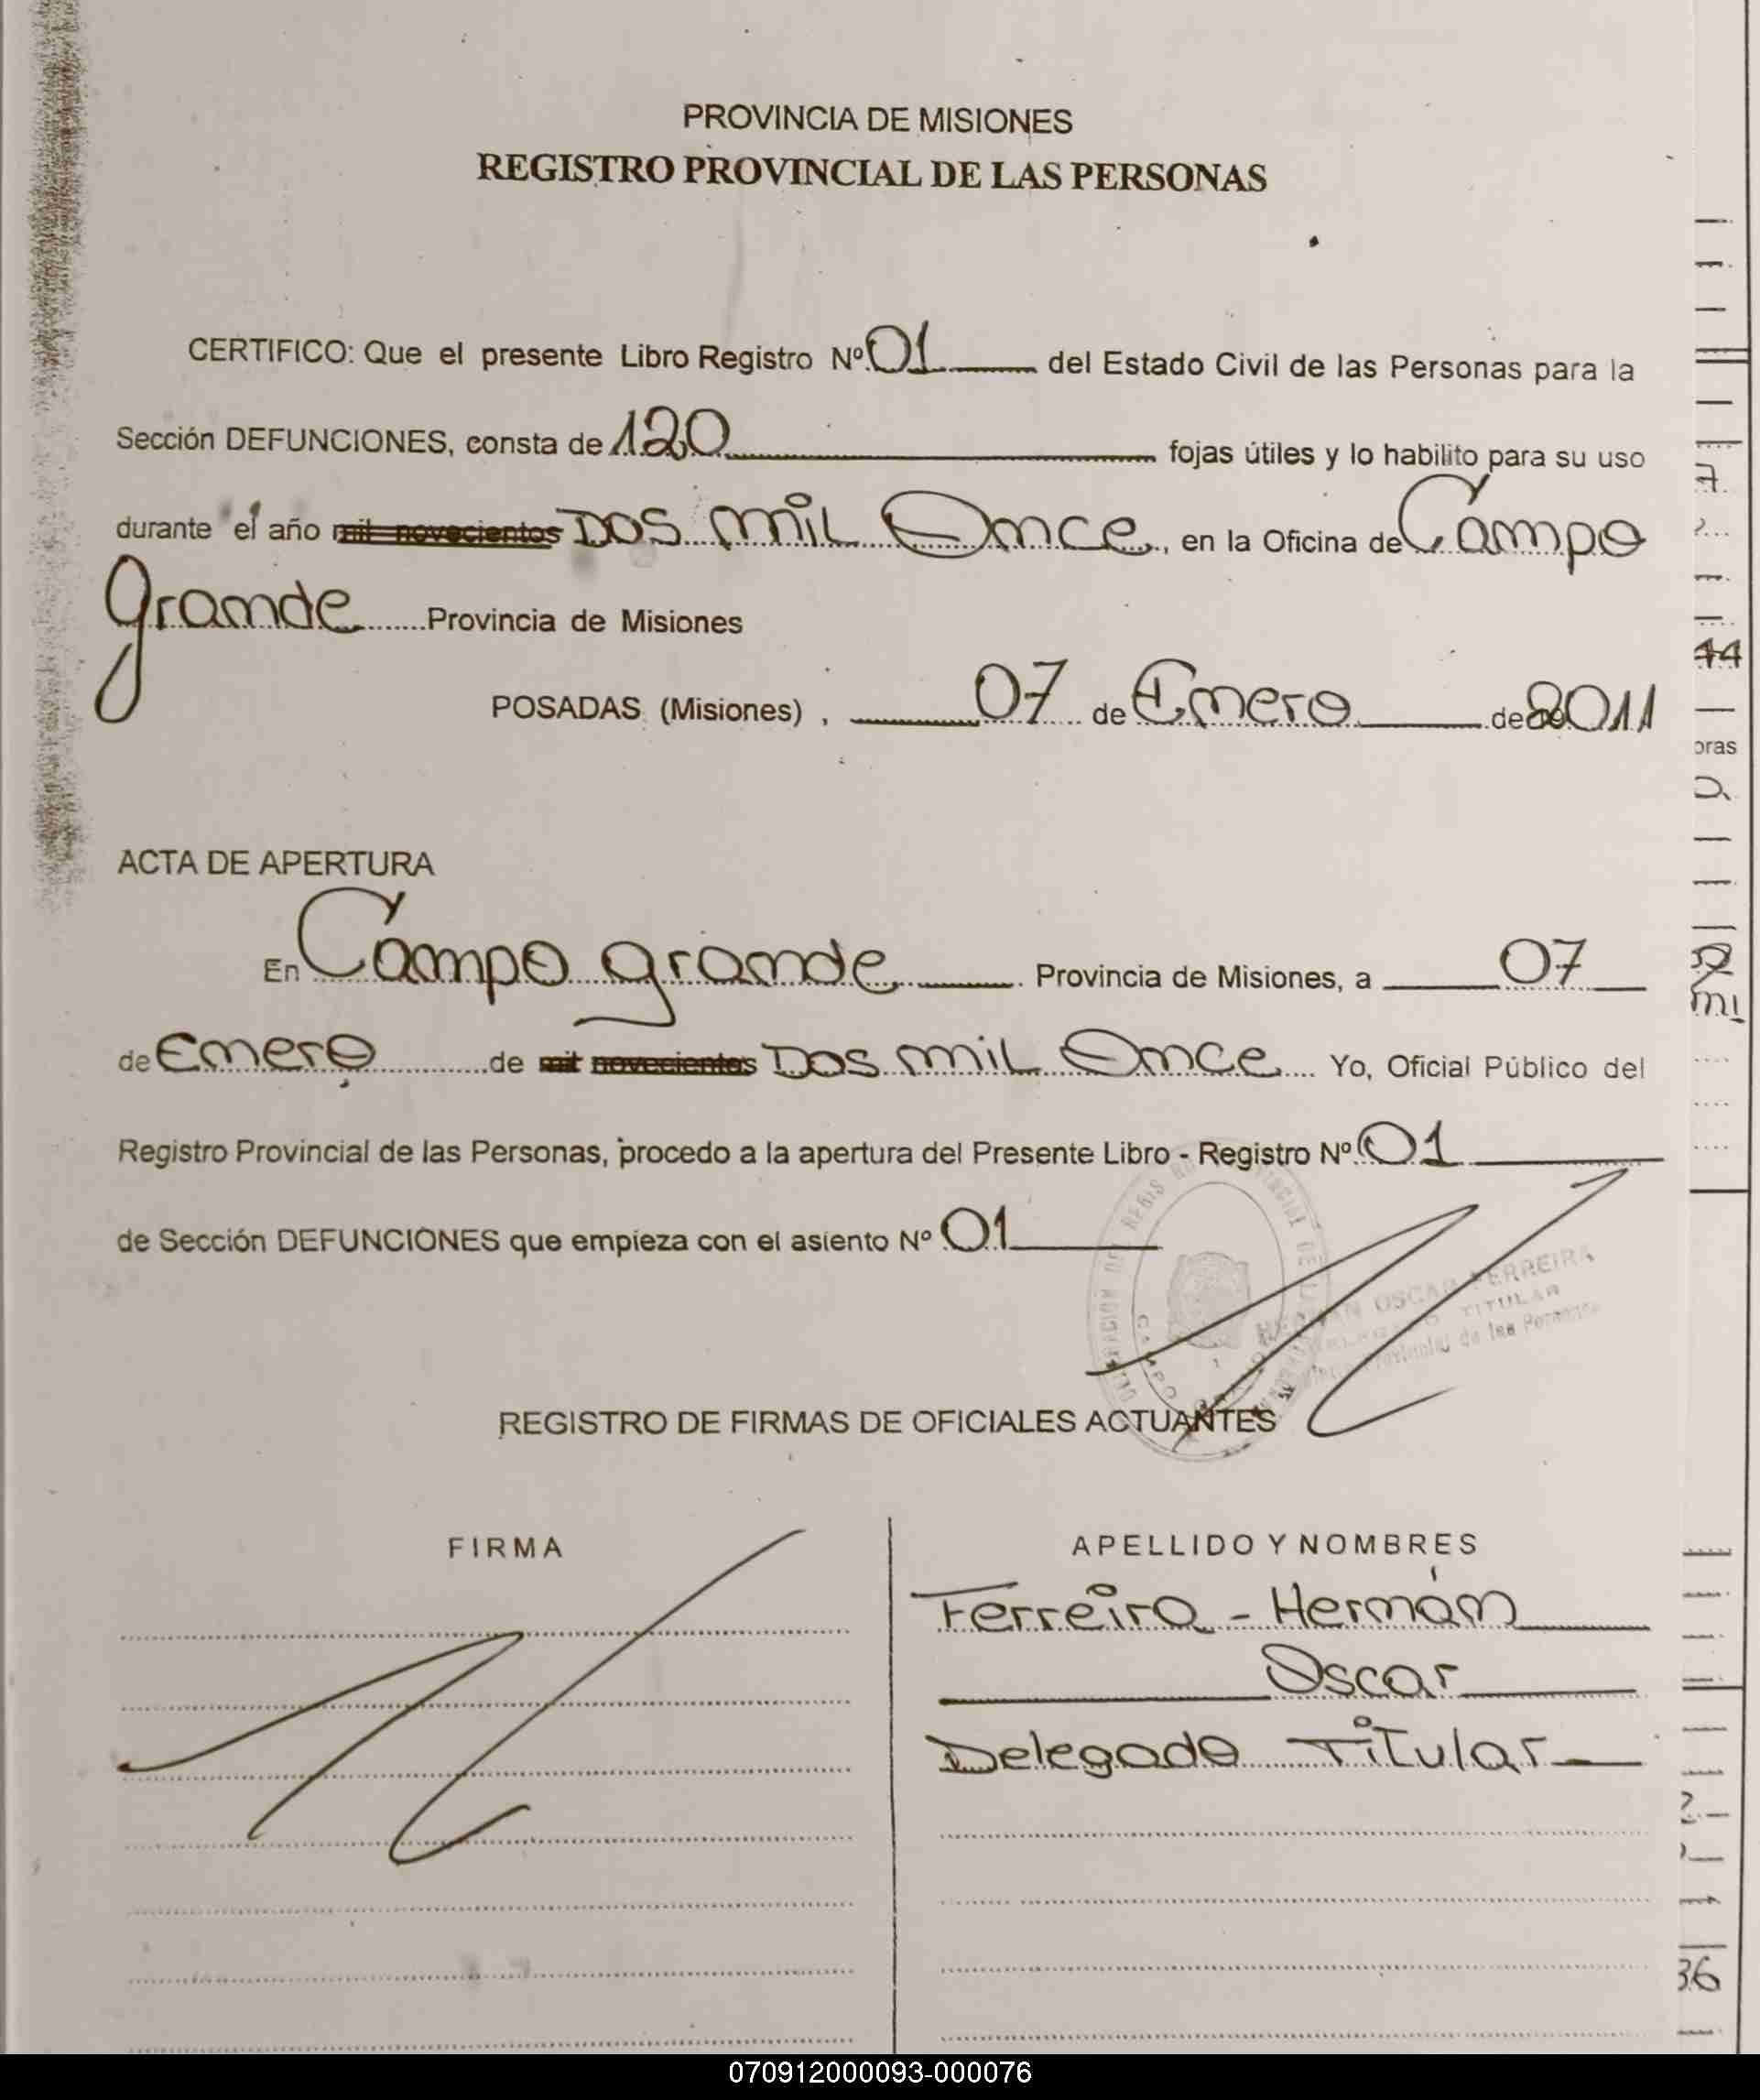 PROVINCIA DE MISIONES
REGISTRO PROVINCIAL DE LAS PERSONAS
CERTIFICO: Que el presente Libro Registro Nº 01 del Estado Civil de las Personas para la
Sección DEFUNCIONES, consta de 120 fojas útiles y lo habilito para su uso
durante el año mil novecientos Dos mil Once, en la Oficina de Campo
grande Provincia de Misiones
POSADAS (Misiones) , 07 de Enero de 2011
ACTA DE APERTURA
En Campo grande Provincia de Misiones, a 07
de Enero de mil novecientos Dos mil Once Yo, Oficial Público del
Registro Provincial de las Personas, procedo a la apertura del Presente Libro - Registro Nº 01
de Sección DEFUNCIONES que empieza con el asiento Nº 01
OSCAR FERREIRA
TITULAR
de las Personas
REGISTRO DE FIRMAS DE OFICIALES ACTUANTES
FIRMA
APELLIDO Y NOMBRES
Ferreira - Hernán
Oscar
Delegado Titular
44
oras
36
070912000093-000076